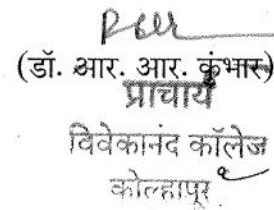 (डॉ. आर. आर. कुंभार)
प्राचार्य
विवेकानंद कॉलेज
कोल्हापूर